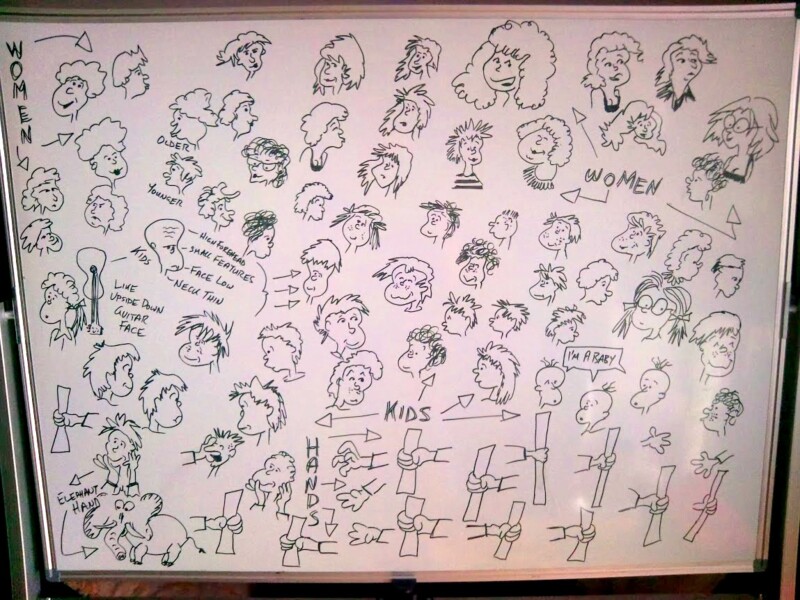 WOMEN
OLDER
YOUNGER
WOMEN
KIDS
HIGH FOREHEAD
SMALL FEATURES
FACE LOW
NECK THIN
LIKE
UPSIDE DOWN
GUITAR
FACE
I'M A BABY
KIDS
HANDS
ELEPHANT
HAND